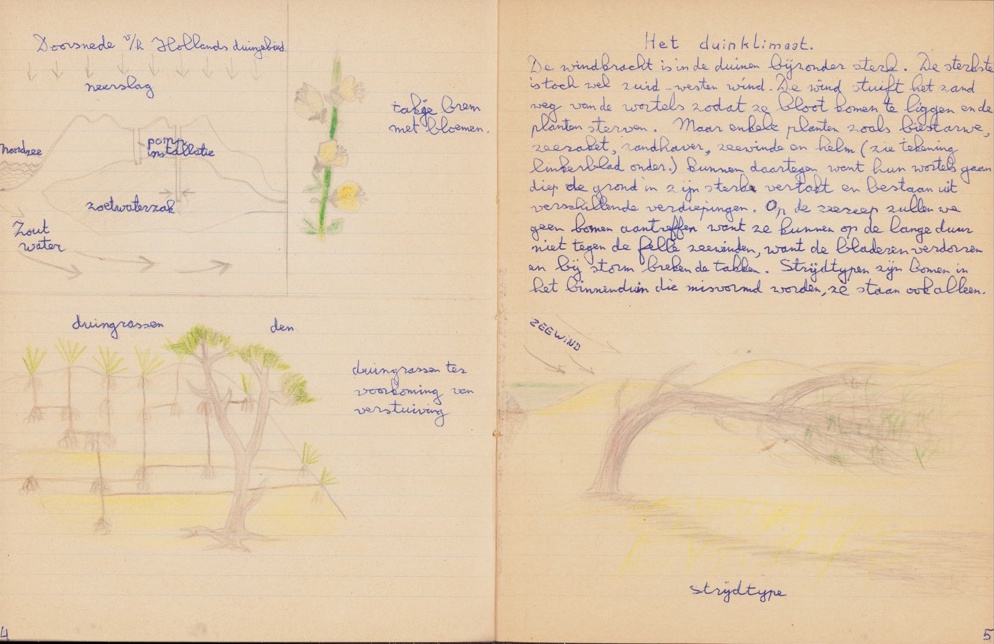 Doorsnede v/h Hollands duingebied
neerslag
Noordzee
pomp
installatie
zoetwaterzak
Zout
water
takje Brem
met bloemen.
duingrassen den
duingrassen ter
voorkoming van
verstuiving
4
Het duinklimaat.
De windkracht is in de duinen bijzonder sterk. De sterkste
is toch wel zuid-westen wind. De wind stuift het zand
weg van de wortels zodat ze bloot komen te liggen en de
planten sterven. Maar enkele planten zoals biestarwe,
zeeraket, zandhaver, zeewinde en helm (zie tekening
linkerblad onder.) kunnen daartegen want hun wortels gaan
diep de grond in zijn sterk vertakt en bestaan uit
verschillende verdiepingen. Op de zeereep zullen we
geen bomen aantreffen want ze kunnen op de lange duur
niet tegen de felle zeewinden, want de bladeren verdorren
en bij storm breken de takken. Strijdtypen zijn bomen in
het binnenduin die misvormd worden, ze staan ook alleen.
ZEEWIND
strijdtype
5